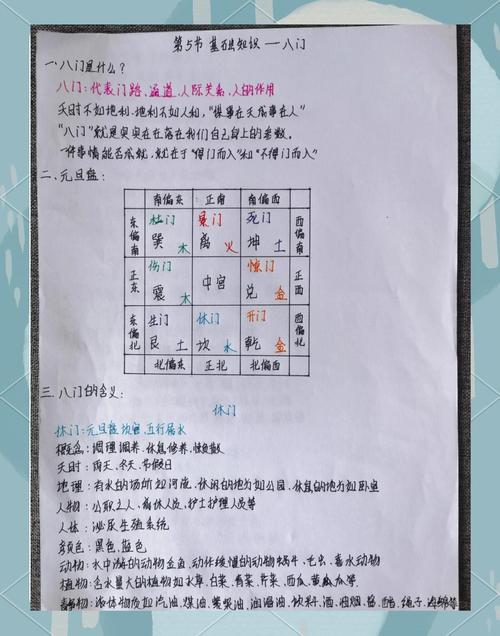 第5节 基础知识 — 八门
一.八门是什么?
八门:代表门路,通道,人际关系,人的作用
天时不如地利,地利不如人和,"谋事在天成事在人"
"八门"就是实实在在落在我们自己身上的参数。
一件事情能否成就,就在于"得门而入"和"不得门而入"
二.元旦盘:
南偏东 正南 南偏西
东偏南 杜门 巽 木 景门 离 火 死门 坤 土 西偏南
正东 伤门 震 木 中宫 惊门 兑 金 正西
东偏北 生门 艮 土 休门 坎 水 开门 乾 金 西偏北
北偏东 正北 北偏西
三.八门的含义:
休门
休门:元旦盘坎宫,五行属水
概念:调理调养.休息修养.
天时:雨天.冬天.节假日
地理:有水的场所如河流.休闲的地方如公园.休息的地方如卧室
人物:公职之人.病休人员.护士护理人员等
人体:泌尿生殖系统
颜色:黑色.蓝色
动物:水中游的动物金鱼.动作缓慢的动物蜗牛.毛虫.喜水动物
植物:含水量大的植物如水草.白菜.青菜.芹菜.西瓜.黄瓜等
静物:液体物质如汽油.煤油.柴油.润滑油.饮料.酒.油烟.醋.绳子.